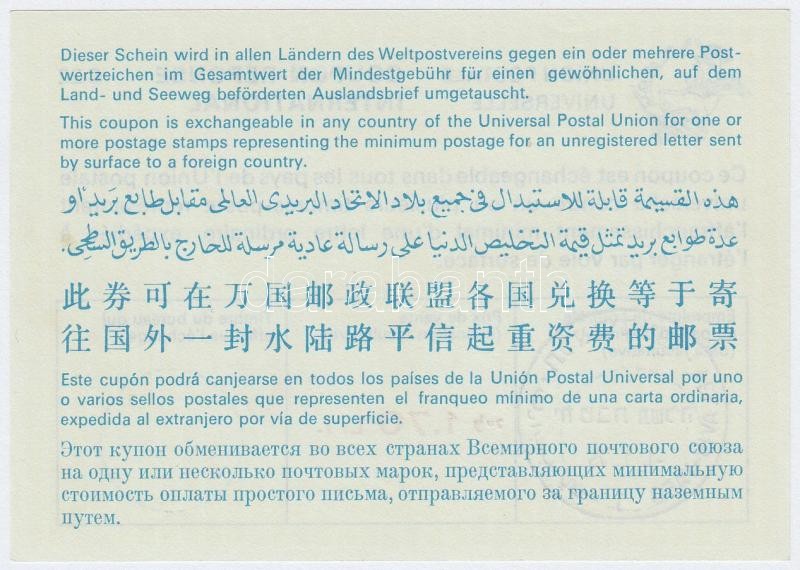 Dieser Schein wird in allen Ländern des Weltpostvereins gegen ein oder mehrere Post-
wertzeichen im Gesamtwert der Mindestgebühr für einen gewöhnlichen, auf dem
Land- und Seeweg beförderten Auslandsbrief umgetauscht.
This coupon is exchangeable in any country of the Universal Postal Union for one or
more postage stamps representing the minimum postage for an unregistered letter sent
by surface to a foreign country.
هذه القسيمة قابلة للاستبدال في جميع بلاد الاتحاد البريدى العالمى مقابل طابع بريد أو
عدة طوابع بريد تمثل قيمة التخليص الدنيا على رسالة عادية مرسلة للخارج بالطريق السطحى.
此券可在万国邮政联盟各国兑换等于寄
往国外一封水陆路平信起重资费的邮票
Este cupón podrá canjearse en todos los países de la Unión Postal Universal por uno
o varios sellos postales que representen el franqueo mínimo de una carta ordinaria,
expedida al extranjero por vía de superficie.
Этот купон обменивается во всех странах Всемирного почтового союза
на одну или несколько почтовых марок, представляющих минимальную
стоимость оплаты простого письма, отправляемого за границу наземным
путем.
darabanth